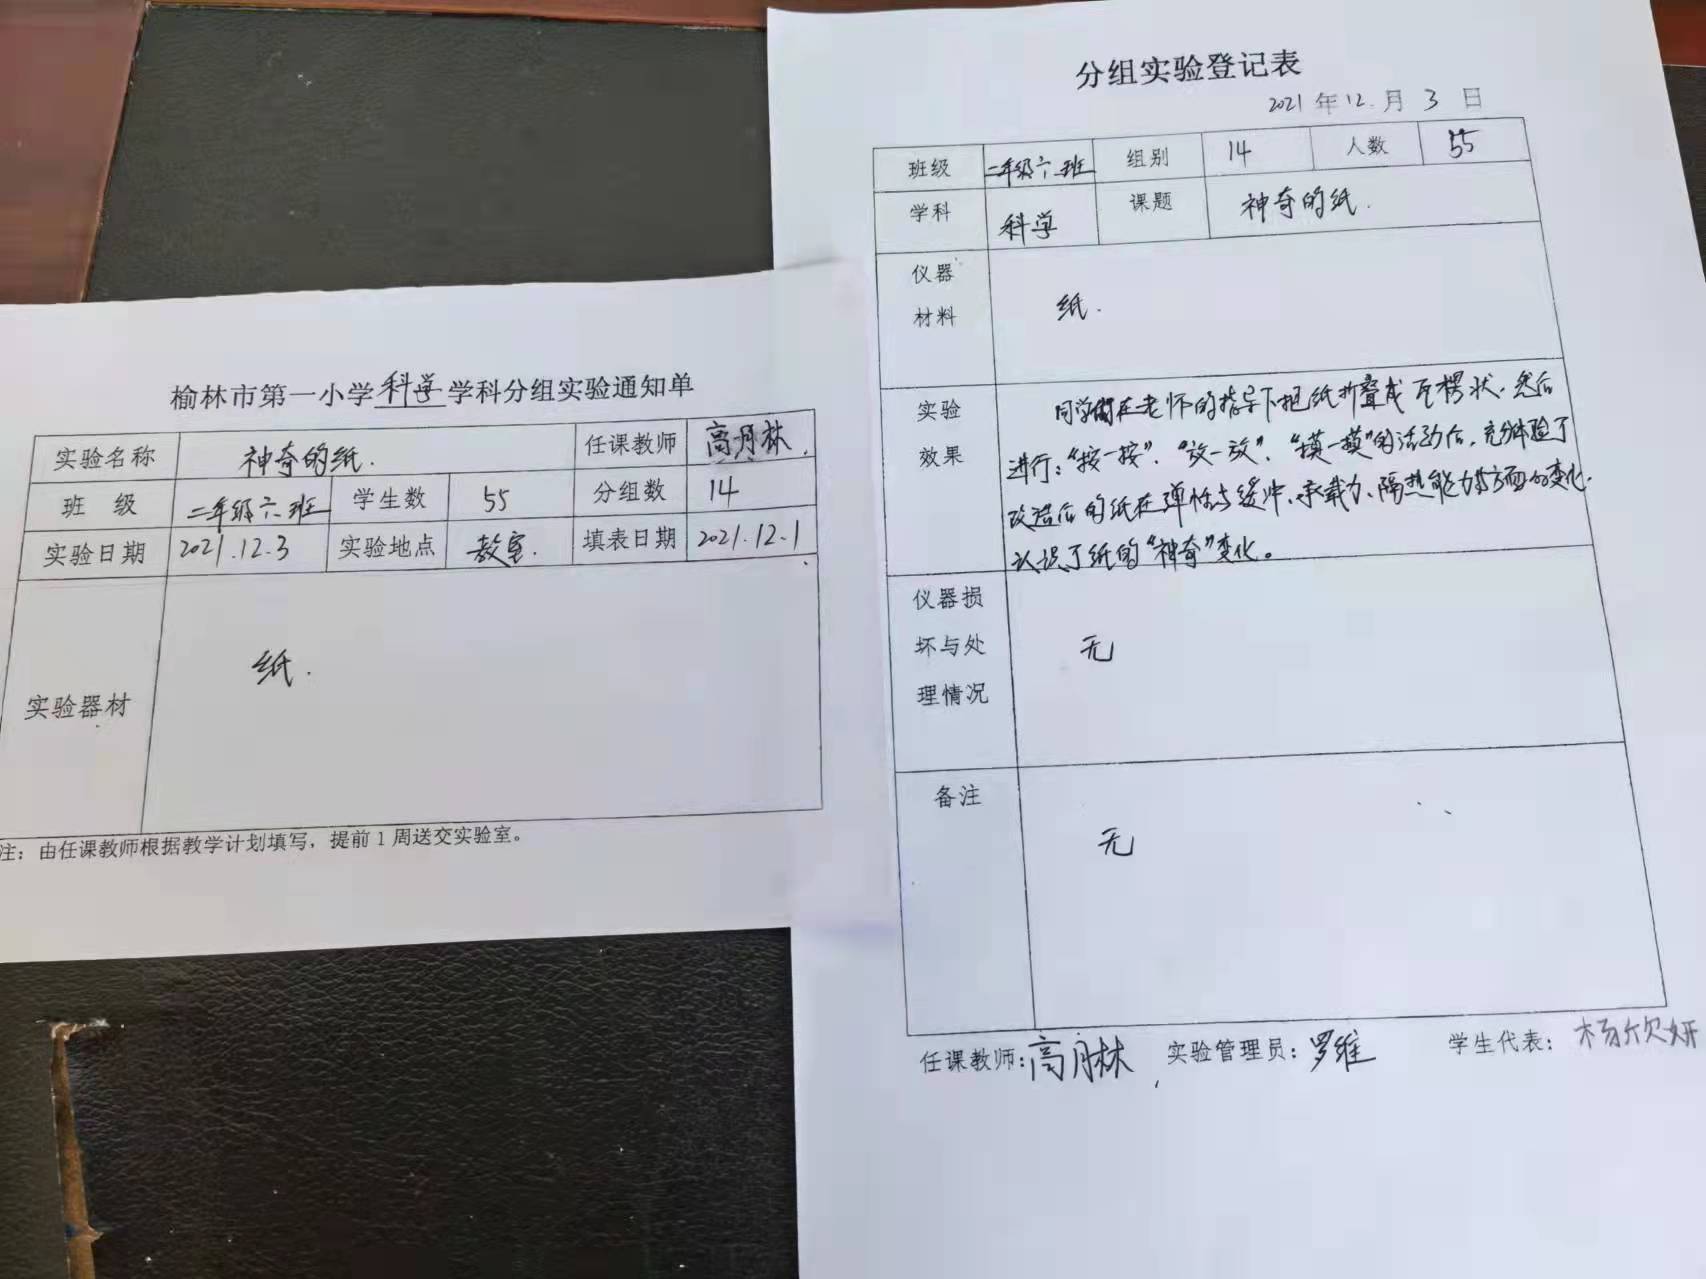 榆林市第一小学科学学科分组实验通知单
实验名称 神奇的纸. 任课教师 高月林.
班 级 二年级六班 学生数 55 分组数 14
实验日期 2021.12.3 实验地点 教室. 填表日期 2021.12.1
实验器材 纸.
注：由任课教师根据教学计划填写，提前1周送交实验室。
分组实验登记表
2021年12.月3日
班级 二年级六班 组别 14 人数 55
学科 科学 课题 神奇的纸.
仪器
材料
纸.
实验
效果
同学们在老师的指导下把纸折叠成瓦楞状.然后
进行：“按一按”、“放一放”、“摸一摸”的活动后，充分体验了
改造后的纸在弹性与缓冲、承载力、隔热能力等方面的变化.
认识了纸的“神奇”变化。
仪器损
坏与处
理情况
无
备注
无
任课教师：高月林 实验管理员：罗维 学生代表：杨欣妍